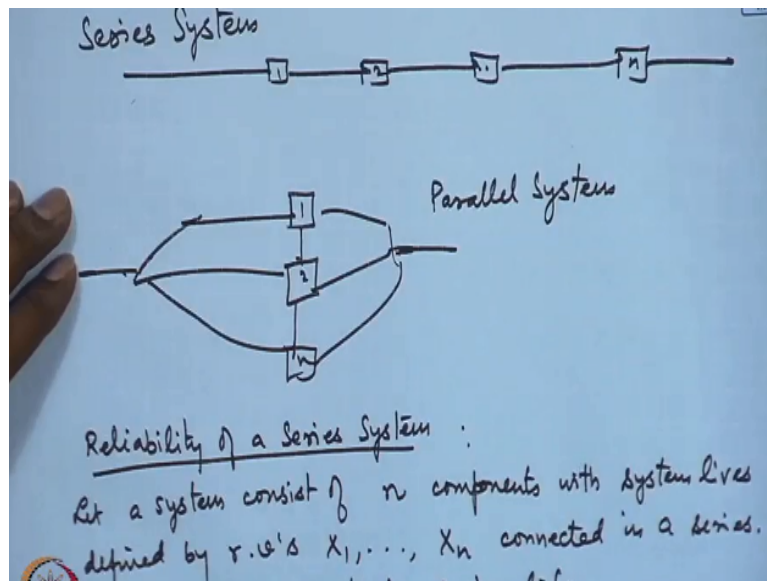 Series System
1 2 .. n
Parallel System
1
2
n
Reliability of a Series System :
Let a system consist of n components with system lives
defined by r.v's X1, ..., Xn connected in a series.